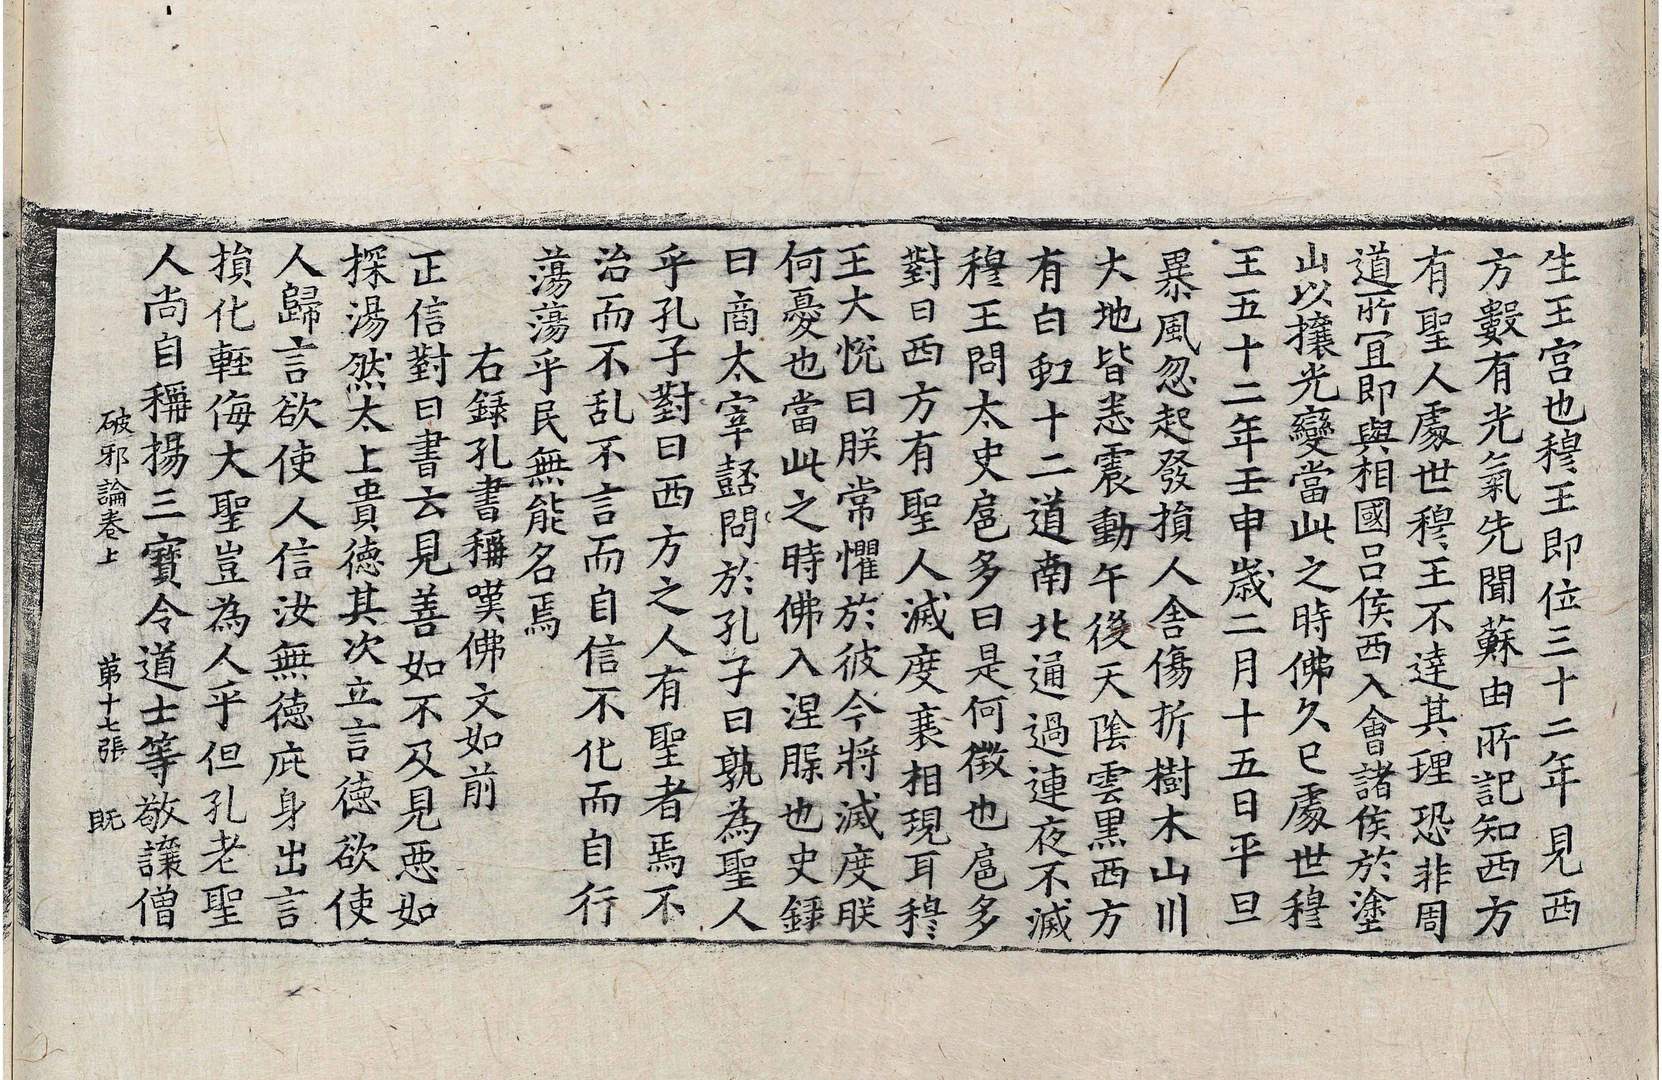 生王宮也穆王即位三十二年見西
方數有光氣先聞蘇由所記知西方
有聖人處世穆王不達其理恐非周
道所冝即與相國吕侯西入會諸侯於塗
山以攘光變當此之時佛久已處世穆
王五十二年壬申歲二月十五日平旦
暴風忽起發損人舍傷折樹木山川
大地皆悉震動午後天陰雲黑西方
有白虹十二道南北通過連夜不滅
穆王問太史扈多曰是何徵也扈多
對曰西方有聖人滅度衰相現耳穆
王大悅曰朕常懼於彼今將滅度朕
何憂也當此之時佛入涅槃也史錄
曰商太宰嚭問於孔子曰孰為聖人
乎孔子對曰西方之人有聖者焉不
治而不乱不言而自信不化而自行
蕩蕩乎民無能名焉
右録孔書稱嘆佛文如前
正信對曰書云見善如不及見惡如
探湯然太上貴德其次立言德欲使
人歸言欲使人信汝無德庇身出言
損化輕侮大聖豈為人乎但孔老聖
人尚自稱揚三寶令道士等敬讓僧
破邪論卷上 苐十七張 旣